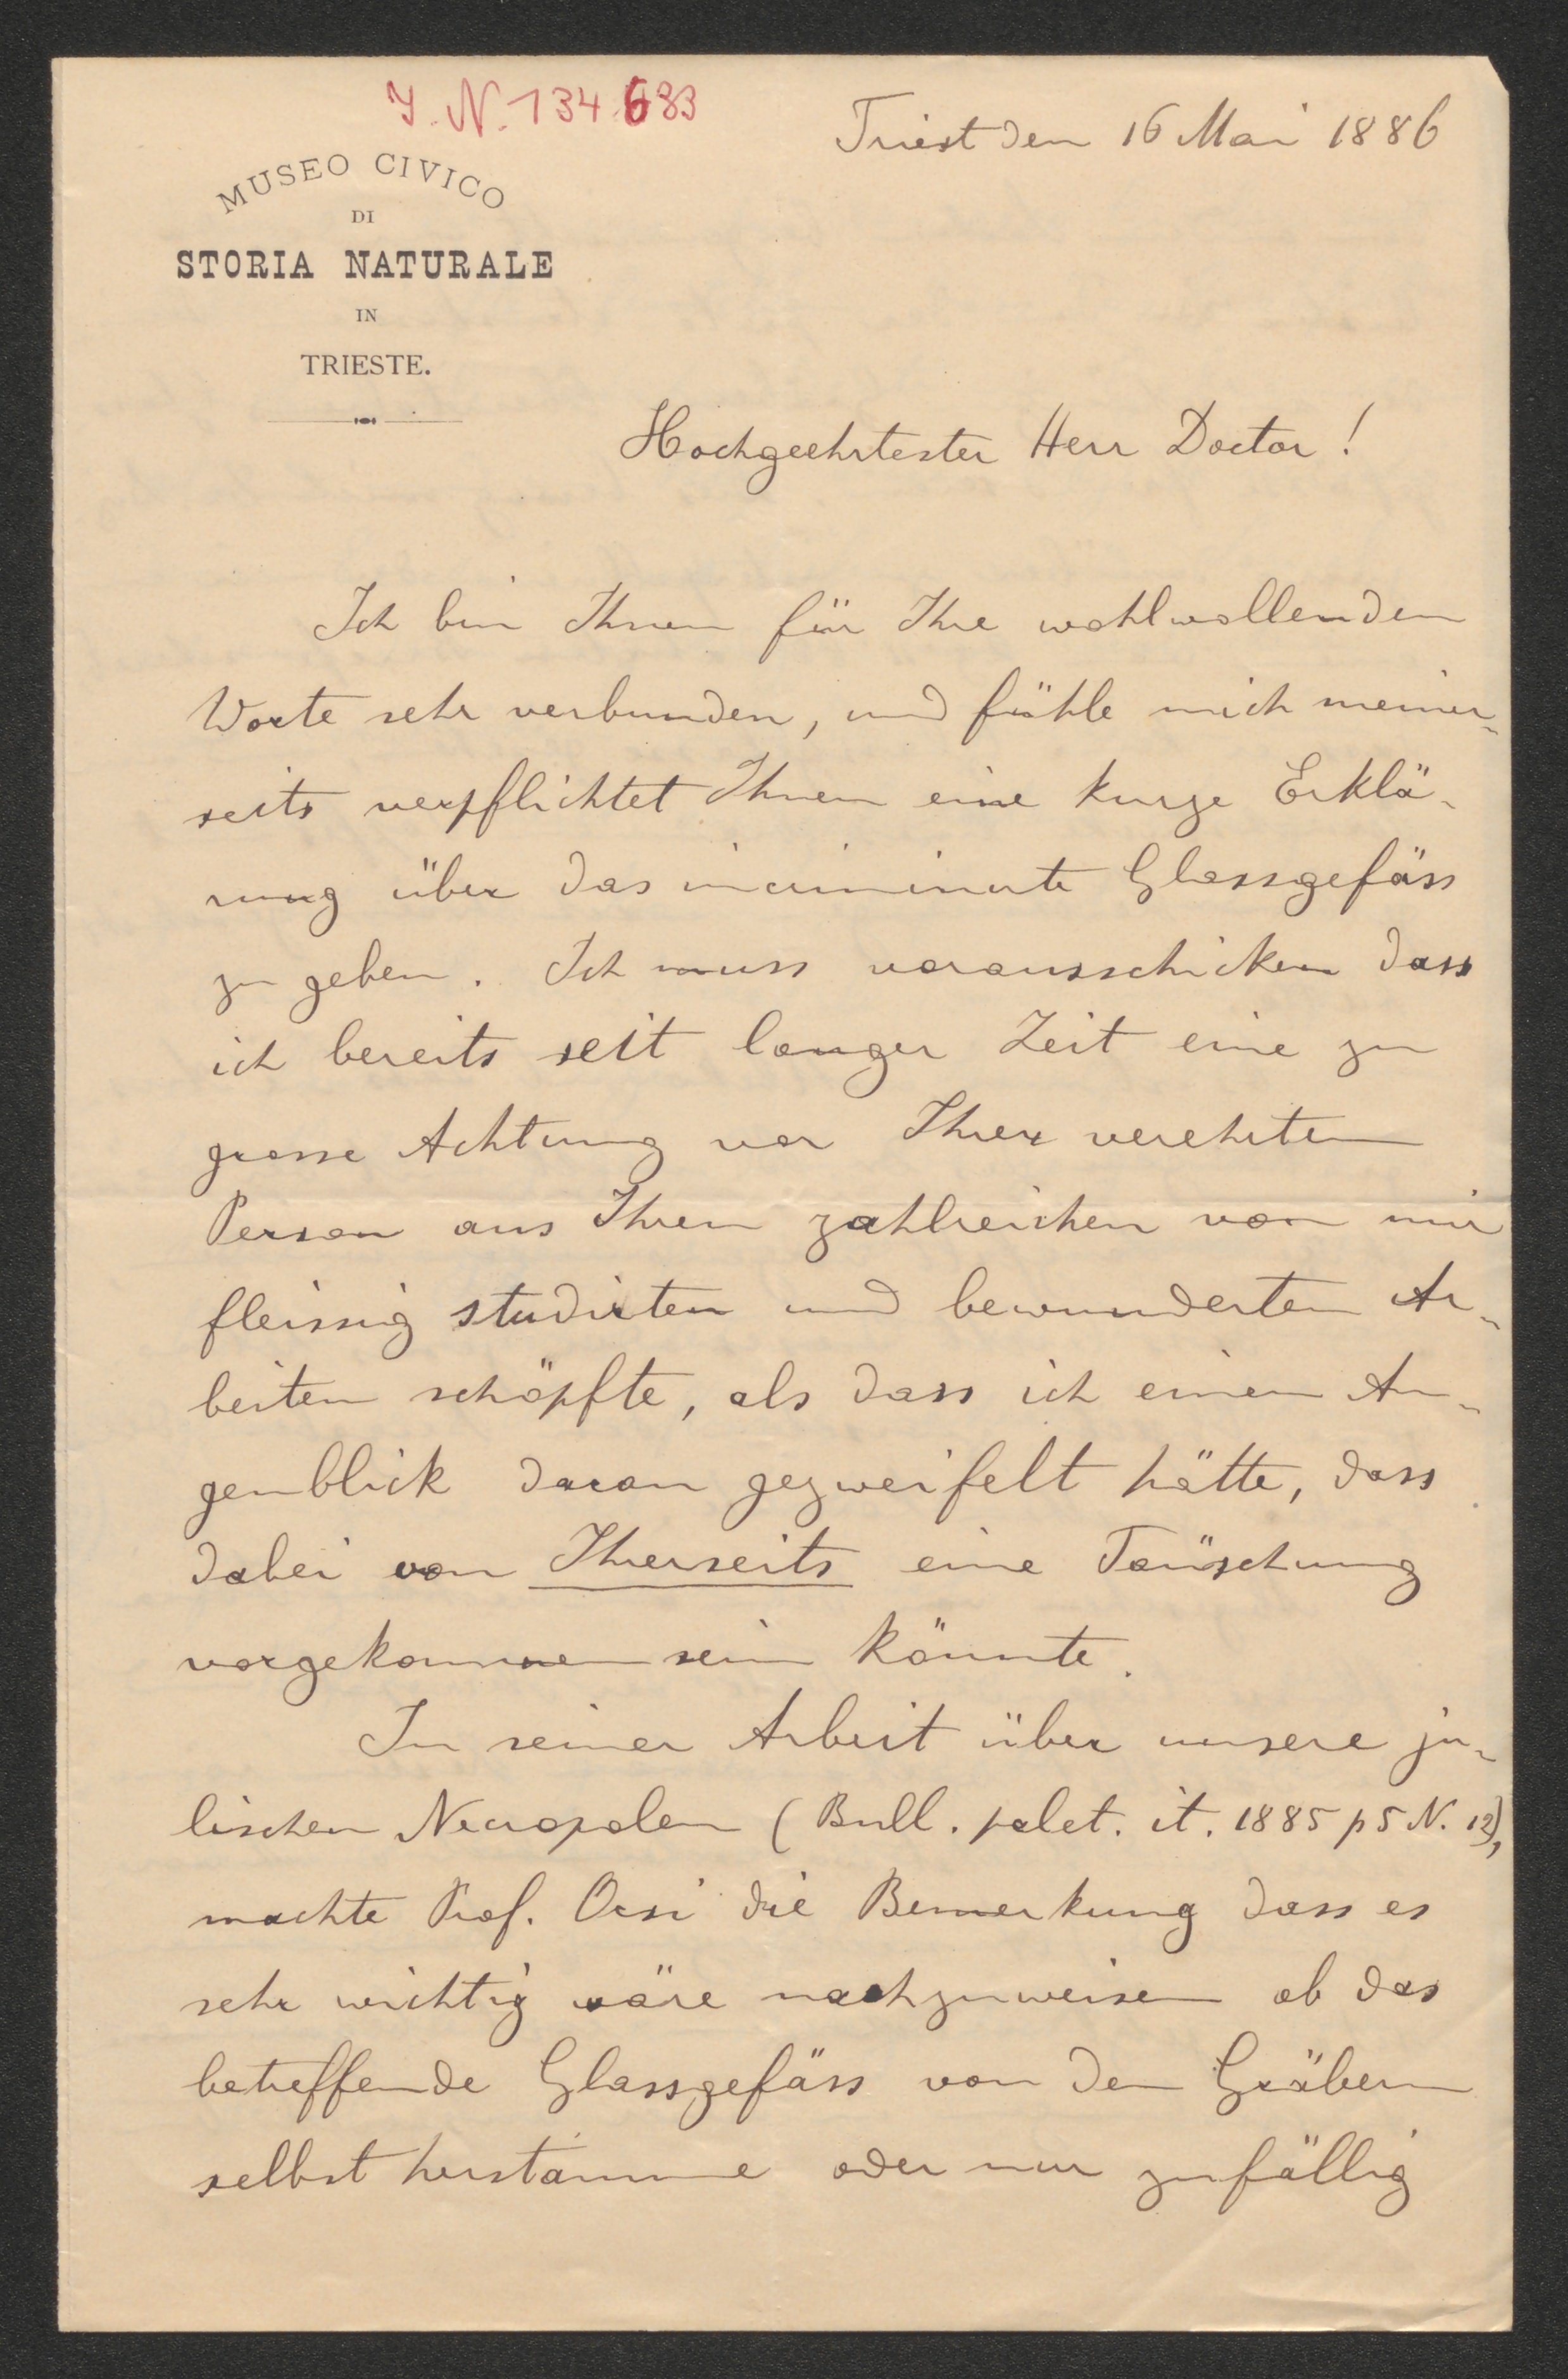 I. N. 134.683
Triest den 16 Mai 1886
MUSEO CIVICO
DI
STORIA NATURALE
IN
TRIESTE.
Hochgeehrtester Herr Doctor !
Ich bin Ihnen für Ihre wohlwollenden
Worte sehr verbunden, und fühle mich meiner-
seits verpflichtet Ihnen eine kurze Erklä-
rung über das incriminirte Glassgefäss
zu geben. Ich muss vorausschicken dass
ich bereits seit langer Zeit eine zu
grosse Achtung vor Ihrer verehrten
Person aus Ihren zahlreichen von mir
fleissig studirten und bewunderten Ar-
beiten schöpfte, als dass ich einen Au-
genblick daran gezweifelt hätte, dass
dabei von Ihrerseits eine Täuschung
vorgekommen sein könnte.
In seiner Arbeit über unsere ju-
lischen Necropolen (Bull. palet. it. 1885 p 5 N. 12),
machte Prof. Orsi die Bemerkung dass es
sehr wichtig wäre nachzuweisen ob das
betreffende Glassgefäss von den Gräbern
selbst herstamme oder nur zufällig